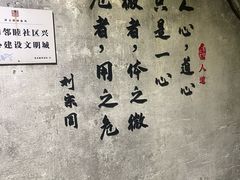 人心,道心
只是一心
微者,体之微
危者,用之危
刘宗周
人道
邻睦社区兴
建设文明城